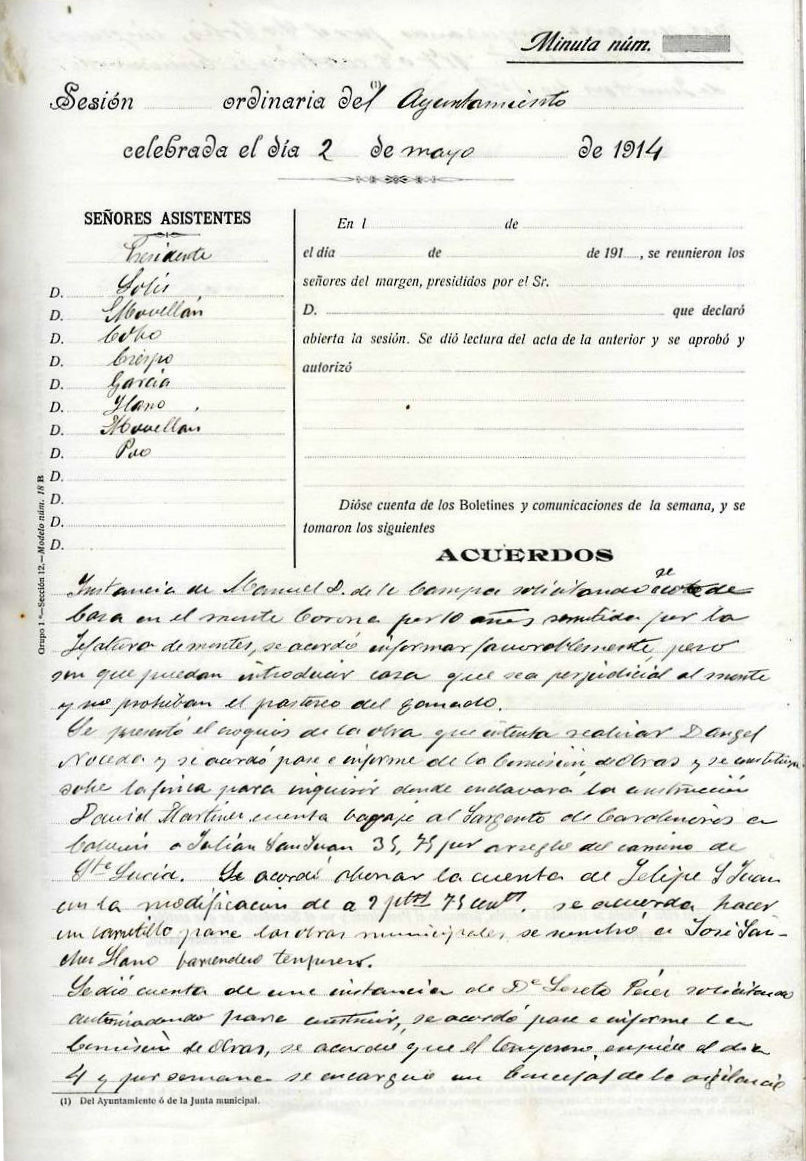 Minuta núm.
Sesión ordinaria del (1) Ayuntamiento
celebrada el día 2 de mayo de 1914
SEÑORES ASISTENTES
Presidente
D. Solís
D. Movellán
D. Cobo
D. Crespo
D. García
D. Llano
D. Movellan
D. Poo
D.
D.
D.
D.
En l de
el día de de 191 , se reunieron los
señores del margen, presididos por el Sr.
D. que declaró
abierta la sesión. Se dió lectura del acta de la anterior y se aprobó y
autorizó
Dióse cuenta de los Boletines y comunicaciones de la semana, y se
tomaron los siguientes
ACUERDOS
Instancia de Manuel D. de la Campa solicitando de
Caza en el monte Corona por 10 años remitida por la
Jefatura de montes, se acordó informar favorablemente pero
sin que puedan introducir caza que sea perjudicial al monte
y no prohiban el pastoreo del ganado.
Se presentó el croquis de la obra que intenta realizar D Angel
Noceda y se acordó pase e informe de la Comisión de Obras y se
sobe la finca para inquirir donde enclavará la construcción
David Martinez cuenta bagaje al Sargento de Carabineros
a Julián San Juan 35,75 por arreglo del camino de
Sta Lucía. Se acordó abonar la cuenta de Felipe S Juan
con la modificacion de a 2 ptas 75 cents. se acuerda hacer
un carretillo para las obras municipales se nombró a José Sán-
chez Llano barrendero temporero.
Se dió cuenta de una instancia de Dª Loreto solicitando
para construir, se acordó pase e informe la
Comisión de Obras, se acordó que el temporero empiece el dia
4 y por semana se encargue un Concejal de la vigilancia
(1) Del Ayuntamiento ó de la Junta municipal.
Grupo 1.º—Sección 12.—Modelo núm. 18 B